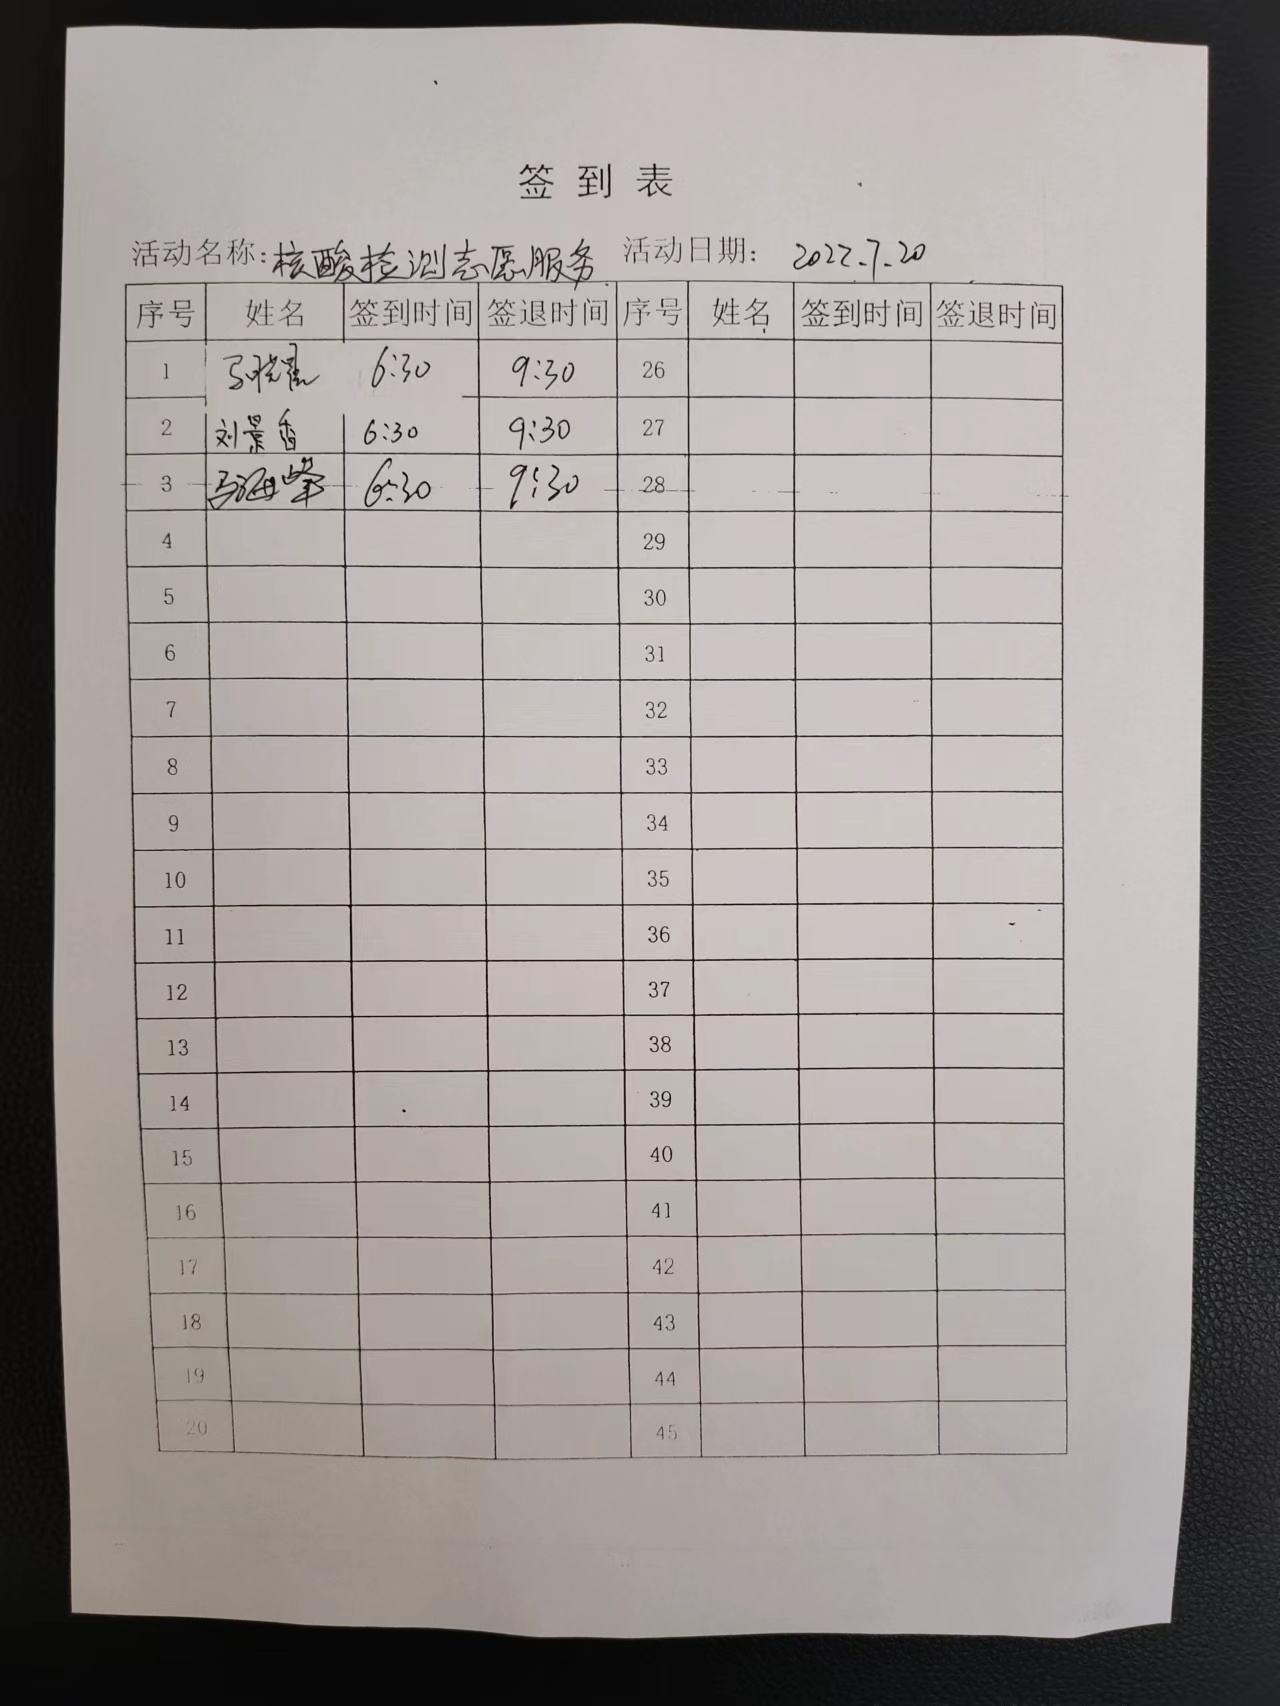 签到表
活动名称:核酸检测志愿服务 活动日期: 2022.7.20
序号 姓名 签到时间 签退时间 序号 姓名 签到时间 签退时间
1 马晓 6:30 9:30 26
2 刘景香 6:30 9:30 27
3 马海峰 6:30 9:30 28
4 29
5 30
6 31
7 32
8 33
9 34
10 35
11 36
12 37
13 38
14 39
15 40
16 41
17 42
18 43
19 44
20 45